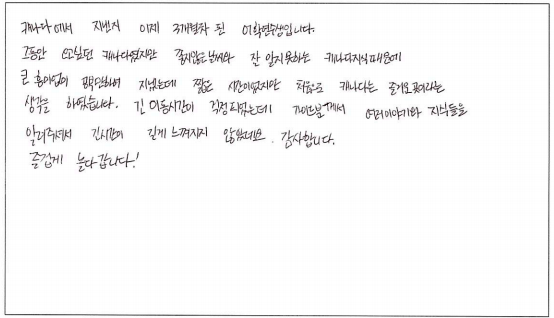 캐나다에서 지낸지 이제 3개월차 된 어학연수생입니다.
그동안 오고싶던 캐나다였지만 좋지않은 날씨와 잘 알지 못하는 캐나다지식 때문에
큰 흥미없이 평범하게 지냈는데 짧은 시간이었지만 처음으로 캐나다는 즐거운곳이라는
생각을 하였습니다. 긴 이동시간이 걱정되었는데 가이드분께서 여러이야기와 지식들을
알려주셔서 긴시간이 길게 느껴지지 않았네요. 감사합니다.
즐겁게 놀다갑니다!